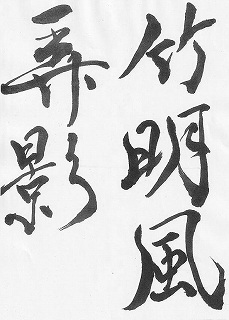 竹明風
弄影